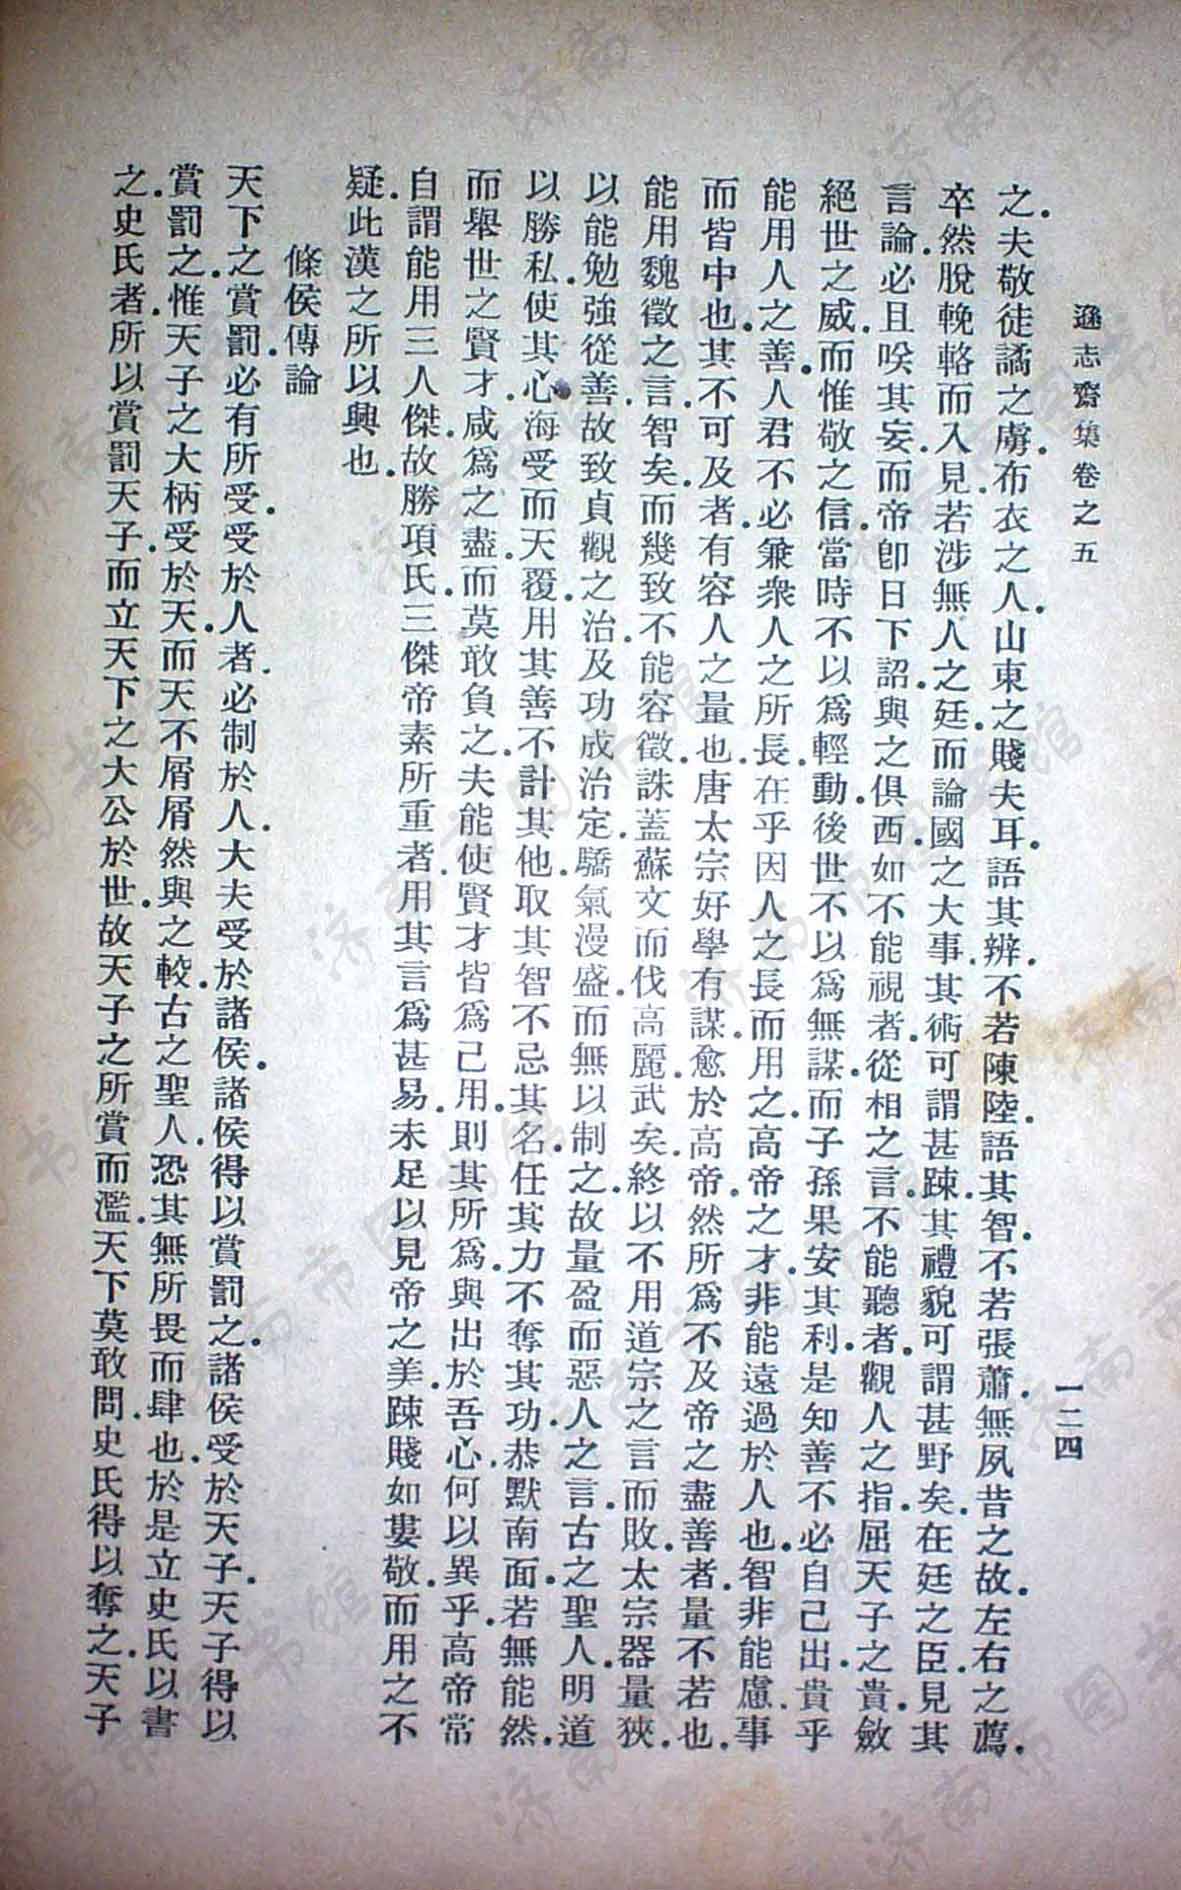 遜志齋集卷之五
一二四
之.夫敬徒譎之虜.布衣之人.山東之賤夫耳.語其辨.不若陳陸.語其智.不若張蕭.無夙昔之故.左右之薦.
卒然脫輓輅而入見.若涉無人之廷.而論國之大事.其術可謂甚踈.其禮貌可謂甚野矣.在廷之臣.見其
言論.必且唉其妄.而帝卽日下詔.與之俱西.如不能視者.從相之言.不能聽者.觀人之指.屈天子之貴.斂
絕世之威.而惟敬之信.當時不以爲輕動.後世不以爲無謀.而子孫果安其利.是知善不必自己出.貴乎
能用人之善.人君不必兼衆人之所長.在乎因人之長而用之.高帝之才.非能遠過於人也.智非能慮事
而皆中也.其不可及者.有容人之量也.唐太宗好學有謀.愈於高帝.然所爲不及帝之盡善者.量不若也.
能用魏徵之言.智矣.而幾致不能容徵.誅蓋蘇文而伐高麗.武矣.終以不用道宗之言而敗.太宗器量狹.
以能勉強從善.故致貞觀之治.及功成治定.驕氣漫盛.而無以制之.故量盈而惡人之言.古之聖人.明道
以勝私.使其心海受而天覆.用其善.不計其他.取其智不忌其名.任其力.不奪其功.恭默南面.若無能然.
而舉世之賢才.咸爲之盡.而莫敢負之.夫能使賢才皆爲己用.則其所爲.與出於吾心.何以異乎.高帝常
自謂能用三人傑.故勝項氏.三傑帝素所重者.用其言爲甚易.未足以見帝之美.踈賤如婁敬.而用之不
疑.此漢之所以興也.
條侯傳論
天下之賞罰.必有所受.受於人者.必制於人.大夫受於諸侯.諸侯得以賞罰之.諸侯受於天子.天子得以
賞罰之.惟天子之大柄.受於天.而天不屑屑然與之較.古之聖人.恐其無所畏而肆也.於是立史氏以書
之.史氏者.所以賞罰天子.而立天下之大公於世.故天子之所賞而濫.天下莫敢問.史氏得以奪之.天子